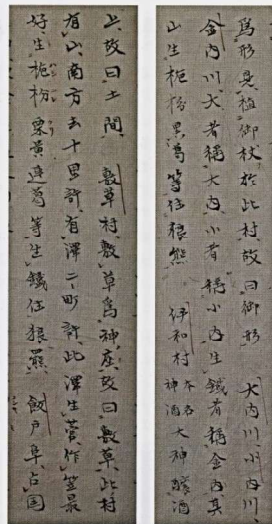 爲形見植御杖於此村故曰御形 大内川小内川
金内川大者稱大内小者稱小内生鐵者稱金内其
山生柂枌黒葛等住狼熊 伊和村 本名神酒 大神釀酒
上故曰土間 敷草村敷草爲神座故曰敷草此村
有山南方去十里許有澤二町許此澤生菅作笠最
好生柂枌栗黄連葛等生鐵住狼羆 飯戸阜占国